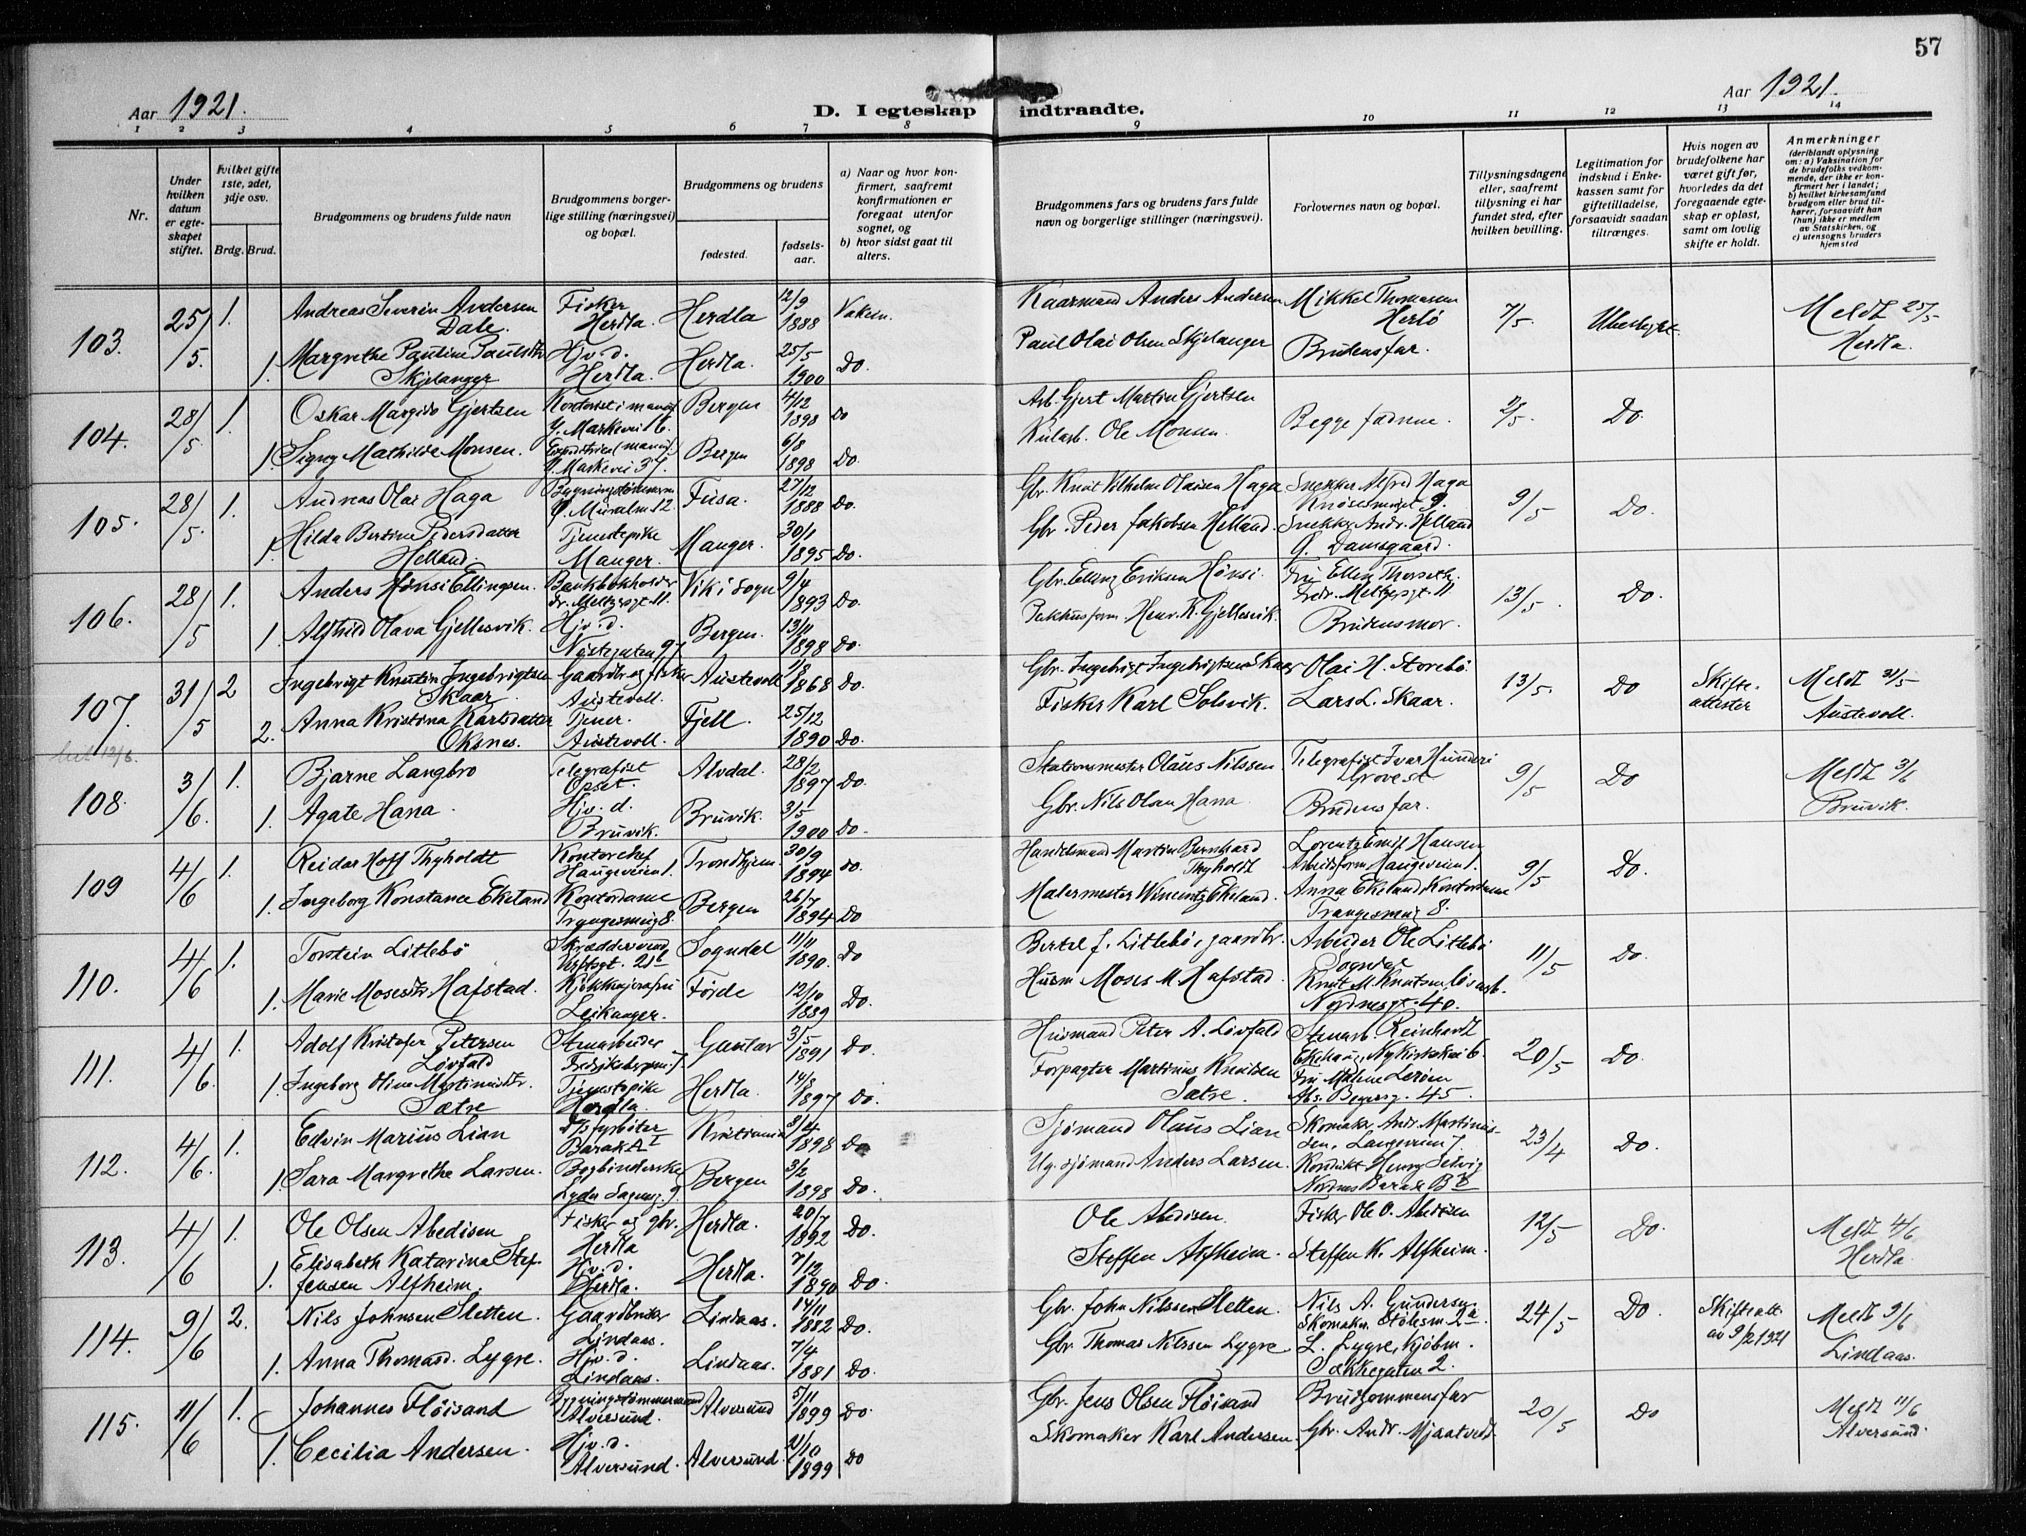 57
Aar 1921.
D. I egteskap indtraadte.
Aar 1921.
1 2 3 4 5 6 7 8 9 10 11 12 13 14
Nr.
Under hvilken datum er egteskapet stiftet.
Hvilket gifte 1ste, 2det, 3dje osv.
Brdg. Brud.
Brudgommens og brudens fulde navn
Brudgommens borgerlige stilling (næringsvei) og bopæl.
Brudgommens og brudens
fødested.
fødselsaar.
a) Naar og hvor konfirmert, saafremt konfirmationen er foregaat utenfor sognet, og
b) hvor sidst gaat til alters.
Brudgommens fars og brudens fars fulde navn og borgerlige stillinger (næringsvei).
Forlovernes navn og bopæl.
Tillysningsdagene eller, saafremt tillysning ei har fundet sted, efter hvilken bevilling.
Legitimation for indskud i Enkekassen samt for giftetilladelse, forsaavidt saadan tiltrænges.
Hvis nogen av brudefolkene har været gift før, hvorledes da det foregaaende egteskap er opløst, samt om lovlig skifte er holdt.
Anmerkninger
(deriblandt oplysning om: a) Vaksination for de brudefolks vedkommende, der ikke er konfirmert her i landet; b) hvilket kirkesamfund brudgom eller brud tilhører, forsaavidt han (hun) ikke er medlem av Statskirken, og c) utensogns bruders hjemsted
103. 25/5. 1. Andreas Severin Andersen Dale. Fisker Herdla. Herdla 12/9 1888 Vaksin. Kaarmand Anders Andersen Mikkel Thomasen Herlö 7/5. Ubeskyt. Meldt 25/5 Herdla.
1. Margrethe Pauline Paulsdtr Skjelanger Hjv. d. Herdla. Herdla. 25/5 1900 Do. Paul Olai Olsen Skjelanger Brudens far.
104. 28/5 1. Oskar Margido Gjertsen Bergen 4/12 1898 Do Arb. Gjert Martin Gjertsen Begge fædrene. 2/5. Do.
1. Signy Mathilde Monsen. Bergen 6/8 1898 Do. Kularb. Ole Monsen.
105. 28/5. 1. Andreas Olai Haga Fusa. 27/12 1888 Do. Gbr. Knut Vilhelm Olaisen Haga Snekker Alfred Haga 9/5 Do.
1. Hilda Bertine Pedersdatter Helland. Tjenestepike Manger. Manger. 30/1 1895 Do. Gbr. Peder Jakobsen Helland. Snekker Andr. Helland G. Damsgaard.
106. 28/5 1. Anders Hönsi Ellingsen. Bankbokholder Vik i Sogn 9/4 1893 Do. Gbr. Elling Eriksen Hönsi. 13/5. Do.
1. Alfhild Olava Gjellesvik. Hjv. d. Nöstegaten 97 Bergen. 13/11 1898 Do. Henr. K. Gjellesvik. Brudens mor.
107. 31/5 2 Ingebrigt Knutsen Ingebrigtsen Skaar. Gaardbr. og fisker Austevoll. Austevoll 2/8 1868 Do. Gbr. Ingebrigt Ingebrigtsen Skaar Olai H. Storebö 13/5. Do Skifteattester Meldt 31/5 Austevoll.
2. Anna Kristina Karlsdatter Oksnes. Tjener. Austevoll. Fjell. 25/12 1890 Do. Fisker Karl Solsvik. Lars L. Skaar.
108. 3/6. 1. Bjarne Langbro Telegrafist Opset. Alvdal. 28/2 1897 Do. Stationsmester Olaus Nilssen 9/5 Do Meldt 3/6 Bruvik.
1. Agate Hana. Hjv. d. Bruvik. Bruvik. 3/5 1900 Do. Gbr. Nils Olsen Hana Brudens far.
109 4/6 1. Reidar Hoff Thyholdt Kontorchef Haugeveien 1. Trondhjem. 30/9 1894 Do. Handelsmand Martin Bernhard Thyholdt Lorentz Emil Hansen Arbeidsform. Haugeveien 1. 9/5 Do.
1. Ingeborg Konstance Ekeland Kontordame Trangesmug 8. Bergen 26/7 1894 Do Malermester Ekeland. Anna Ekeland, Kontordame Trangesmug 8.
110. 4/6 1. Torstein Litlebö Skræddersvend Sogndal 11/11 1890. Do Bertel J. Litlebö, gaardbr. Arbeider Ole Litlebö Sogndal 11/5 Do.
1. Marie Mosesdtr. Hafstad. Leikanger. Förde 12/10 1889 Do. Husm Moses M. Hafstad. Knut M. Knutsen, lösarb. Nordnesgt. 40.
111. 4/6. 1. Adolf Kristofer Petersen Lövfald Stenarbeider Gaular 3/5 1891 Do. Husmand Peter A. Lövfald Stenarb. Reinhardt 20/5 Do.
1. Ingeborg Oline Martinusdtr. Sætre Tjenestepike Herdla. Herdla. 14/8 1897 Do. Forpagter Martinus Knudsen Sætre.
112. 4/6. 1. Edvin Marius Lian Kristiania 3/4 1898 Do Sjömand Olaus Lian Skomaker Andr. Martinussen, Langeveien 7 23/4 Do.
1. Sara Margrethe Larsen. Bogbinderske Lyder Sagensg. 9. Bergen 3/2 1898 Do. Ug. Sjömand Anders Larsen.
113. 4/6 1. Ole Olsen Abedisen Fisker og gbr. Herdla Herdla. 20/7 1892 Do. Ole Abedisen. Fisker Ole O. Abedisen 12/5 Do. Meldt 4/6 Herdla.
1. Elisabeth Katarina Steffensen Alfheim. Hjv. d. Herdla. Herdla. 7/12 1890 Do. Steffen Alfheim. Steffen K. Alfheim.
114. 9/6 2. Nils Johnsen Sletten. Gaardbruker Lindaas. Lindaas. 14/11 1882 Do. Gbr. John Nilssen Sletten. Nils A. Gundersen Skomaker Stölesm. 2a. 24/5 Do. Skifteatt. av 9/2 1921 Meldt 9/6 Lindaas.
1. Anna Thomasd. Lygre. Hjv. d. Lindaas. Lindaas. 7/4 1881 Do. Gbr. Thomas Nilssen Lygre L. Lygre, Kjöbm. Sækkegaten 2.
115. 11/6 1. Johannes Flöisand Bygningstömmermand Alversund. Alversund 5/11 1899 Do. Gbr. Jens Olsen Flöisand Brudgommens far 20/5 Do Meldt 11/6 Alversund.
1. Cecilia Andersen. Hjv. d. Alversund. Alversund. 2/10 1899 Do Skomaker Karl Andersen. Gbr. Andr. Mjaatvedt.